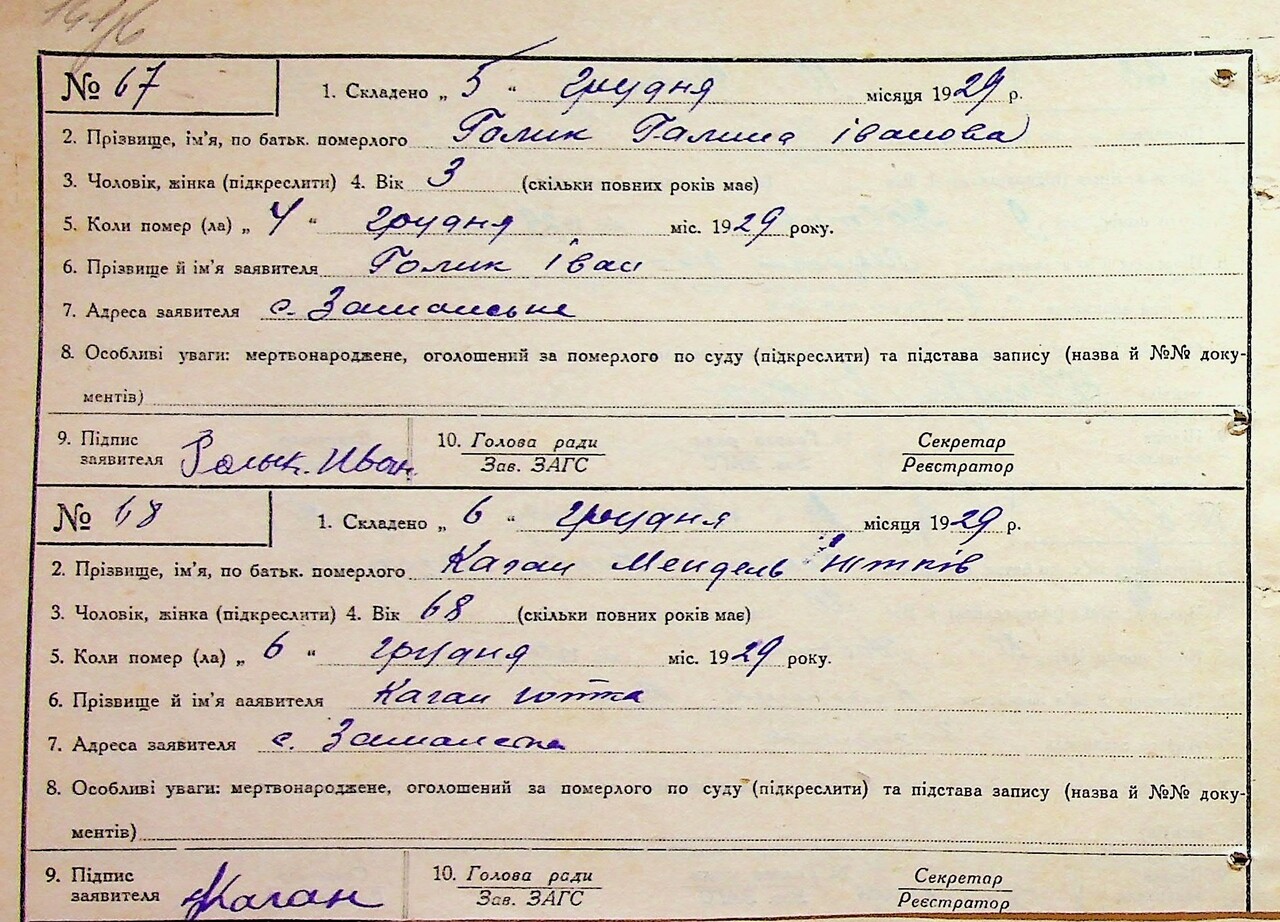 № 67
1. Складено „ 5 “ грудня місяця 1929 р.
2. Прізвище, ім’я, по батьк. померлого Голик Галина Іванова
3. Чоловік, жінка (підкреслити) 4. Вік 3 (скільки повних років має)
5. Коли помер (ла) „ 4 “ грудня міс. 1929 року.
6. Прізвище й ім’я заявителя Голик Іван
7. Адреса заявителя с.
8. Особливі уваги: мертвонароджене, оголошений за померлого по суду (підкреслити) та підстава запису (назва й №№ доку-
ментів)
9. Підпис заявителя Голык. Иван
10. Голова ради
Зав. ЗАГС
Секретар
Реєстратор
№ 68
1. Складено „ 6 “ грудня місяця 1929 р.
2. Прізвище, ім’я, по батьк. померлого Каган Мендель
3. Чоловік, жінка (підкреслити) 4. Вік 68 (скільки повних років має)
5. Коли помер (ла) „ 6 “ грудня міс. 1929 року.
6. Прізвище й ім’я заявителя Каган
7. Адреса заявителя с.
8. Особливі уваги: мертвонароджене, оголошений за померлого по суду (підкреслити) та підстава запису (назва й №№ доку-
ментів)
9. Підпис заявителя Каган
10. Голова ради
Зав. ЗАГС
Секретар
Реєстратор